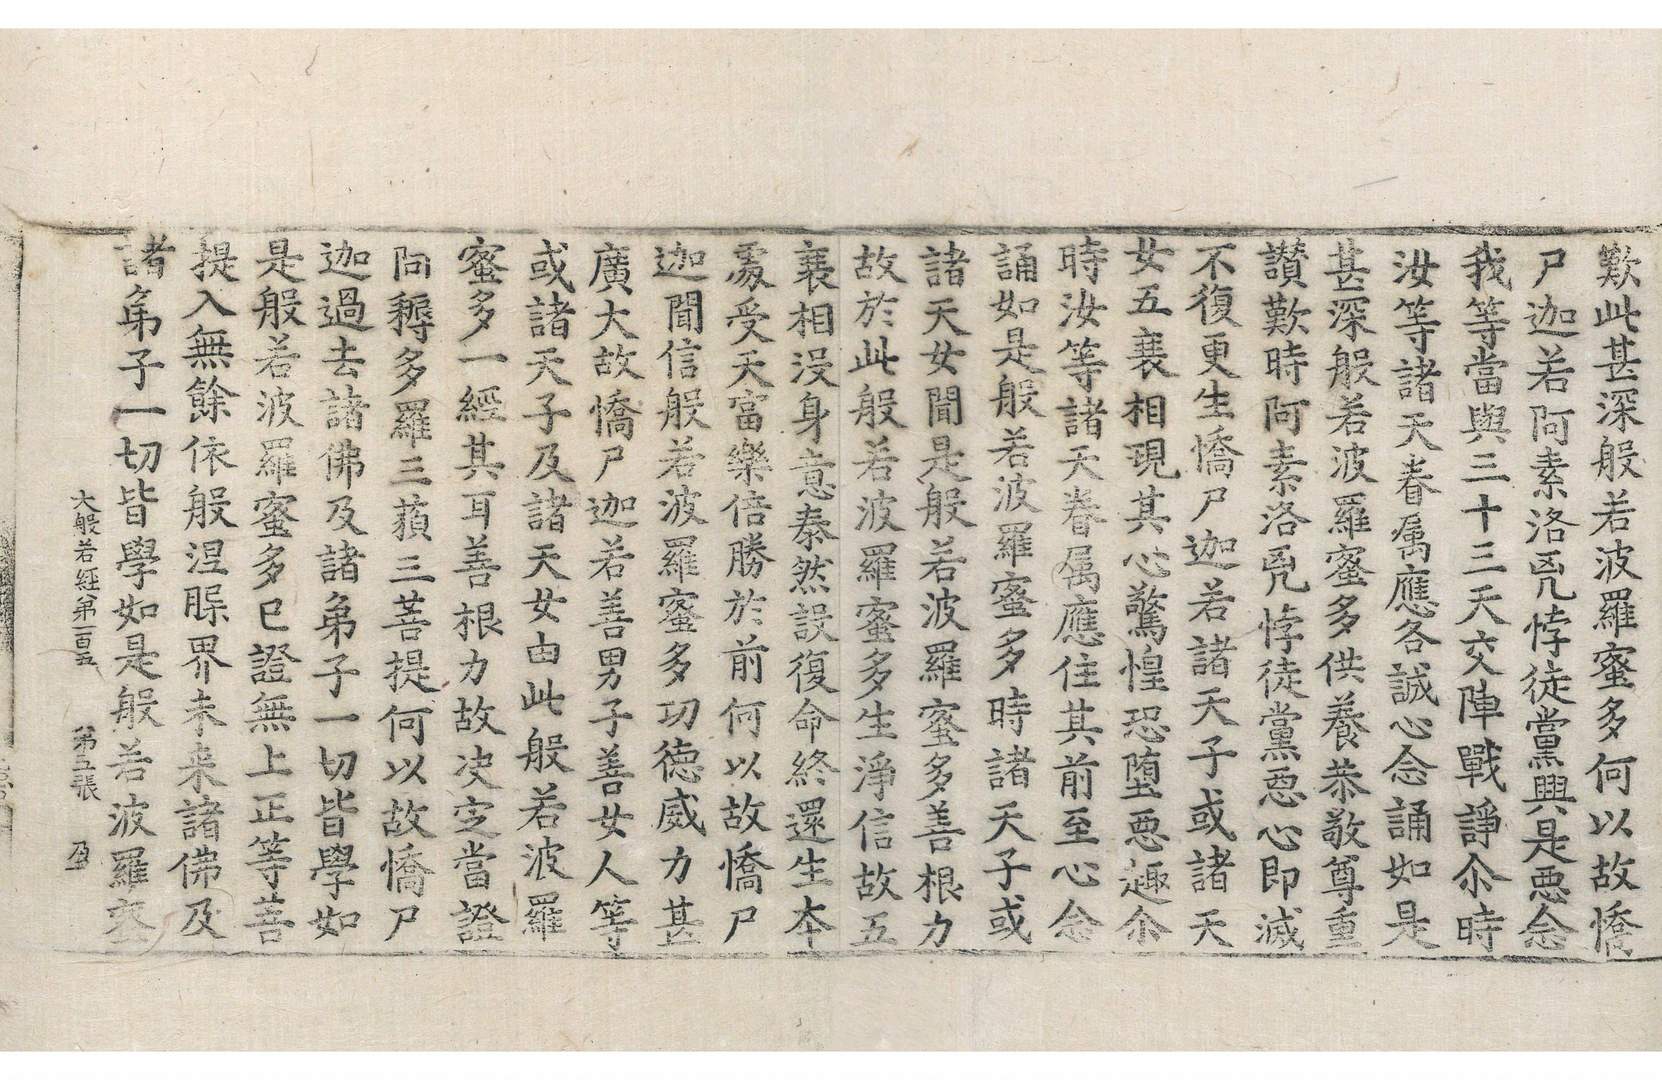 歎此甚深般若波羅蜜多何以故憍
尸迦若阿素洛兇悖徒黨興是惡念
我等當與三十三天交陣戰諍尒時
汝等諸天眷属應各誠心念誦如是
甚深般若波羅蜜多供養恭敬尊重
讚歎時阿素洛兇悖徒黨惡心即滅
不復更生憍尸迦若諸天子或諸天
女五衰相現其心驚惶恐墮惡趣尒
時汝等諸天眷属應住其前至心念
誦如是般若波羅蜜多時諸天子或
諸天女聞是般若波羅蜜多善根力
故於此般若波羅蜜多生淨信故五
衰相没身意泰然設復命終還生本
處受天富樂倍勝於前何以故憍尸
迦聞信般若波羅蜜多功德威力甚
廣大故憍尸迦若善男子善女人等
或諸天子及諸天女由此般若波羅
蜜多一經其耳善根力故决定當證
阿耨多羅三藐三菩提何以故憍尸
迦過去諸佛及諸弟子一切皆學如
是般若波羅蜜多已證無上正等菩
提入無餘依般涅槃界未来諸佛及
諸弟子一切皆學如是般若波羅蜜
大般若經第一百五 第五張 盈